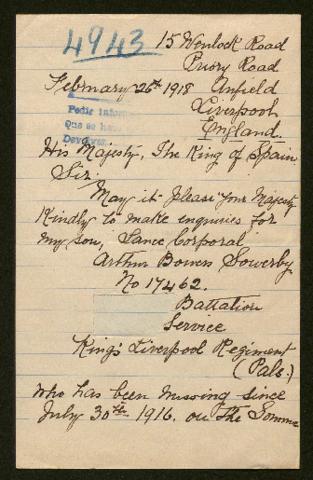 4943
15 Wenlock Road
Priory Road
February 26th 1918 Anfield
Liverpool
England.
Pedir
Que se
His Majesty, The King of Spain
Sir
May it please your Majesty
Kindly to make enquiries for
my son, Lance Corporal
Arthur Bowen Sowerby
No 17462.
Battalion
Service
King's Liverpool Regiment
(Pals.)
who has been missing since
July 30th 1916. on The Somme